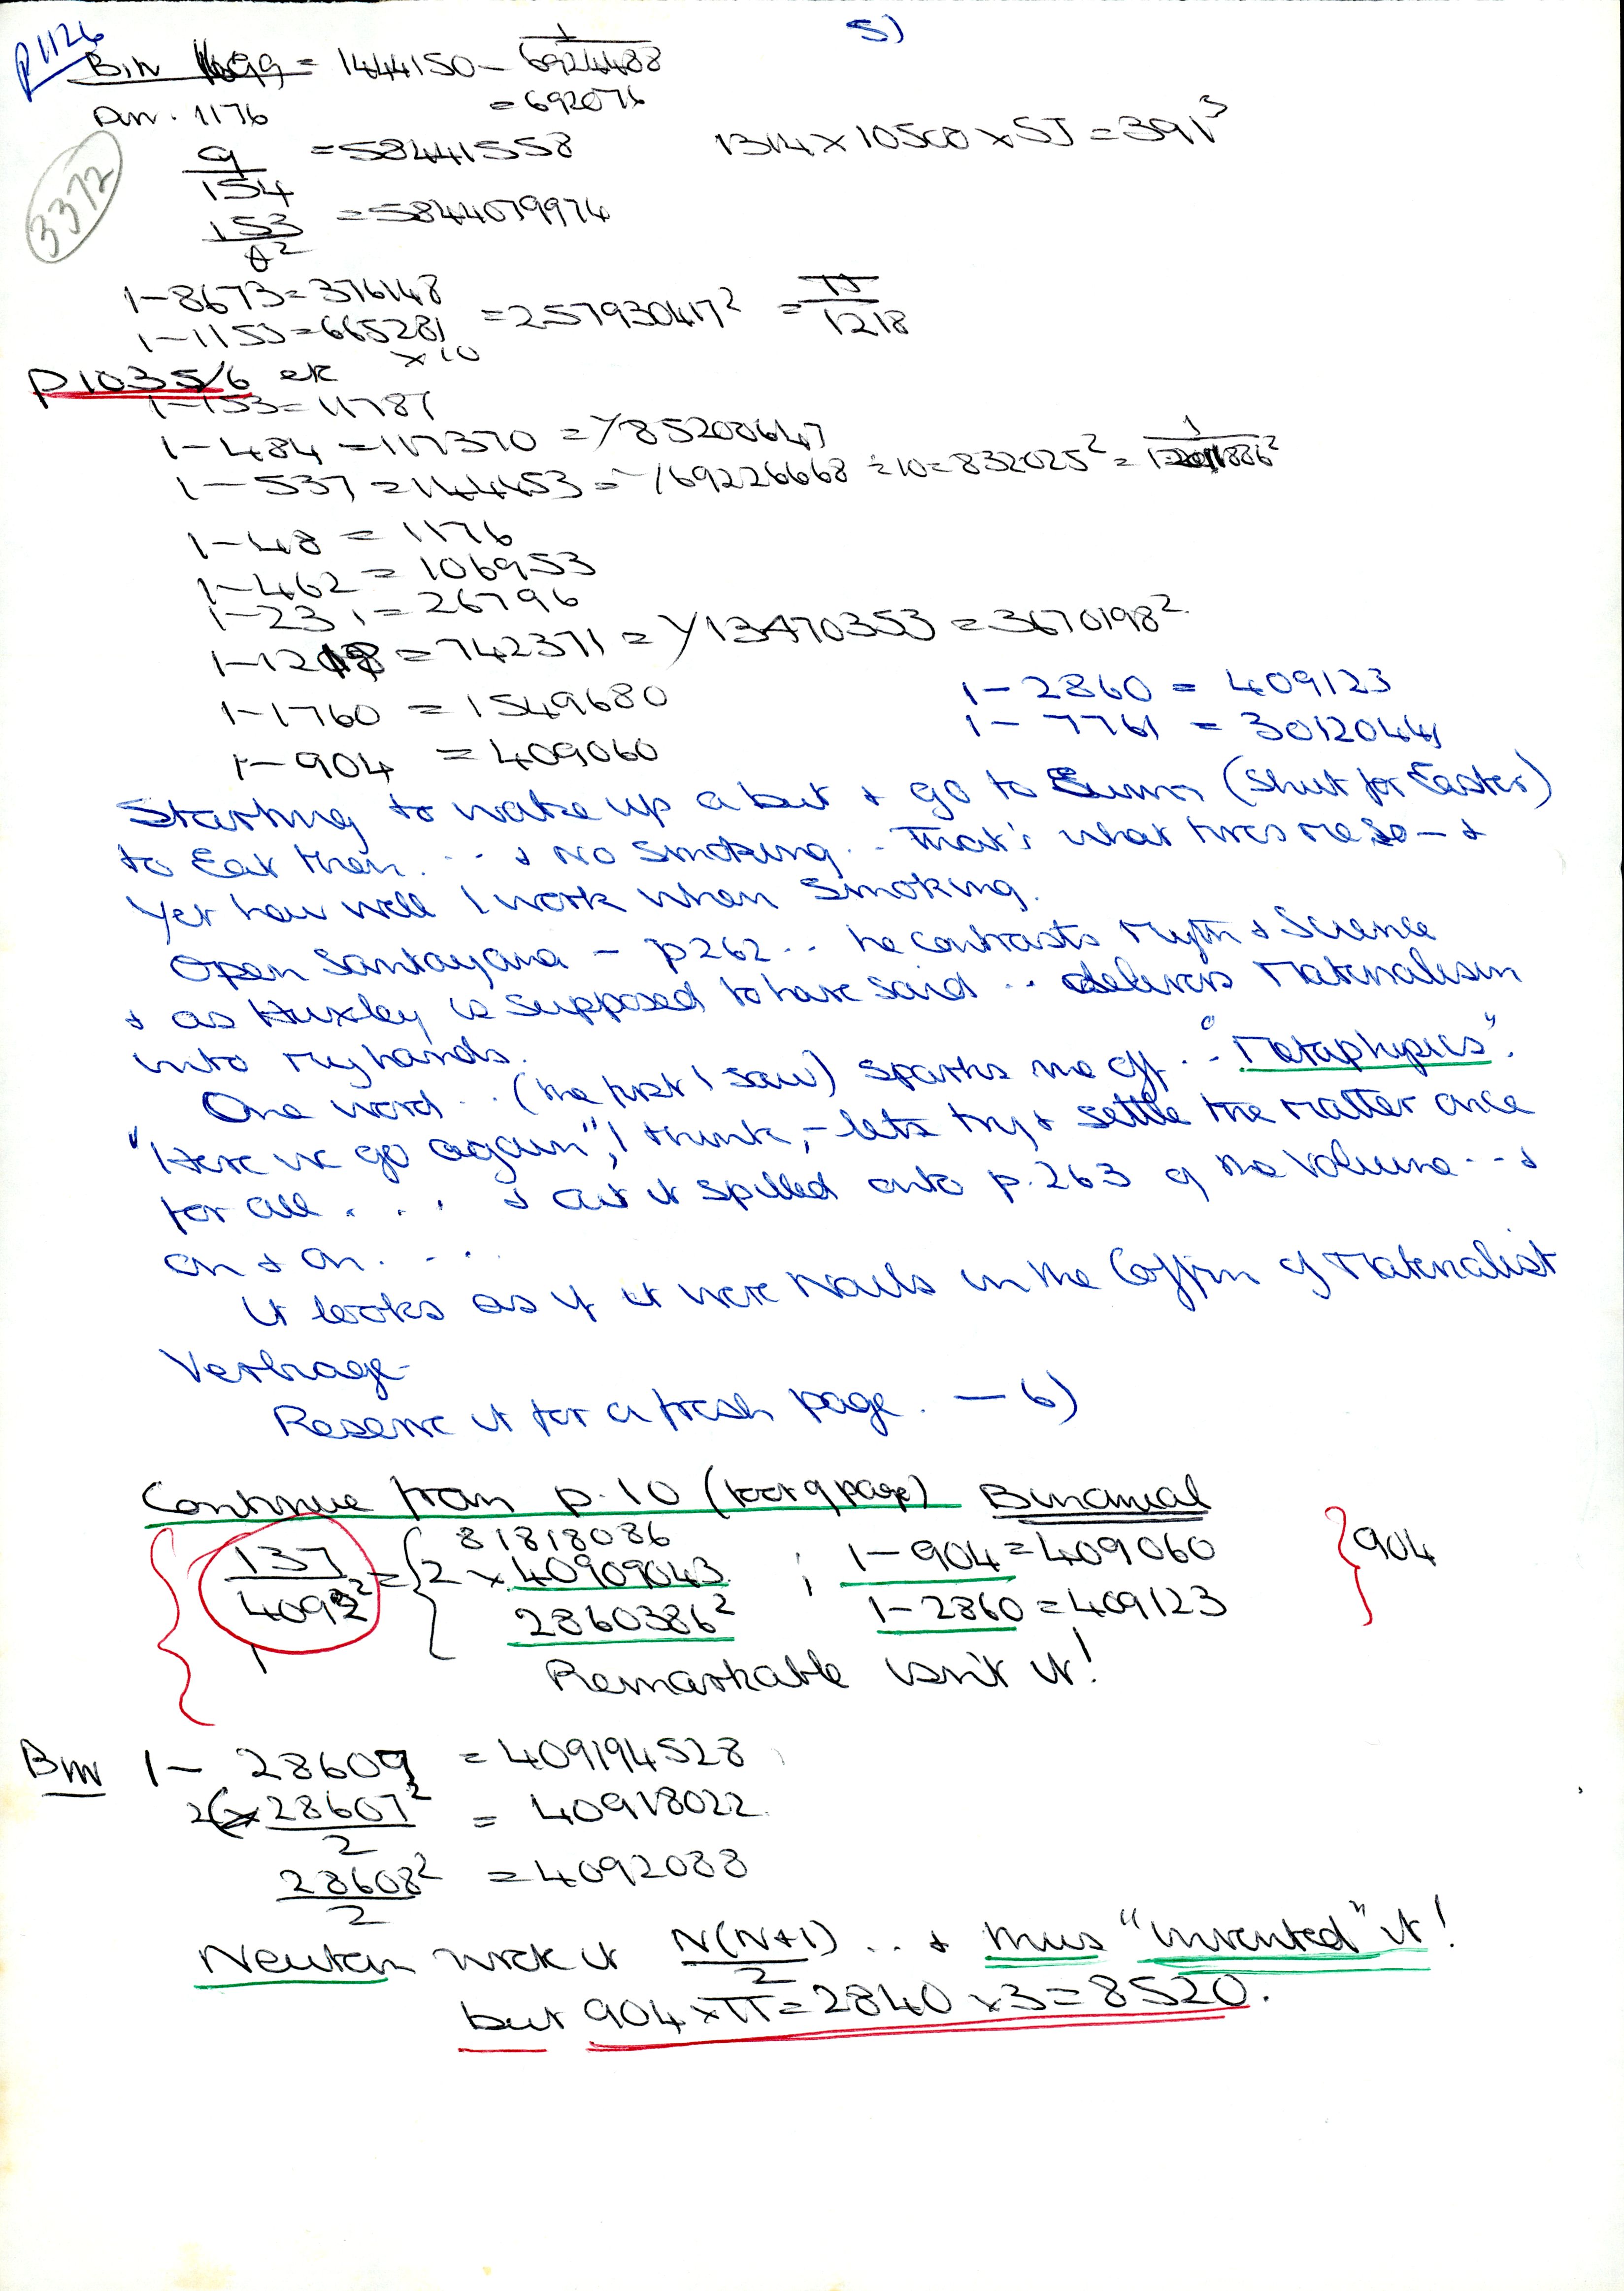 p1126
5)
Bin 1699 = 1444150 - 1/6924488
Din. 1176 = 692076
9/154 = 58441558
1314 x 10500 x 55 = 391³
3372
153/θ² = 5844079974
1-8673 = 376148
1-1153 = 665281 x10 = 257930417² = π/1218
p1035/6 etc
1-153 = 11781
1-484 = 117370 = γ85200647
1-537 = 144453 = γ69226668 ÷10 = 832025² =
1-48 = 1176
1-462 = 106953
1-231 = 26796
1-1218 = 742371 = γ13470353 = 3670198²
1-1760 = 1549680
1-2860 = 409123
1-904 = 409060
1-7761 = 30120441
Starting to wake up a bit & go to (Shut for Easter)
to Eat then. ... & No smoking.. That's what tires me so - &
Yet how well I work when smoking.
Open Santayana - p262.. he contrasts Myth & Science
& as Huxley is supposed to have said .. delivers Materialism
into my hands.
One word .. (the first I saw) sparks me off .. "Metaphysics".
"Here we go again", I think, - lets try & settle the matter once
for all .... & out it spilled onto p.263 of the Volume --&
on & on. ...
It looks as if it were Nails in the Coffin of Materialist
Verbiage-
Reserve it for a fresh page. — 6)
Continue from p.10 (foot of page) Binomial
81818086
137/4092² = { 2 x 40909043/2860386² ; 1-904 = 409060 } 904
1-2860 = 409123
Remarkable isn't it!
Bin 1- 28609 = 409194528
28607²/2 = 40918022
28608²/2 = 4092088
Newton wrote it N(N+1)/2 .. & thus "invented" it!
but 904 x π = 2840 x 3 = 8520.